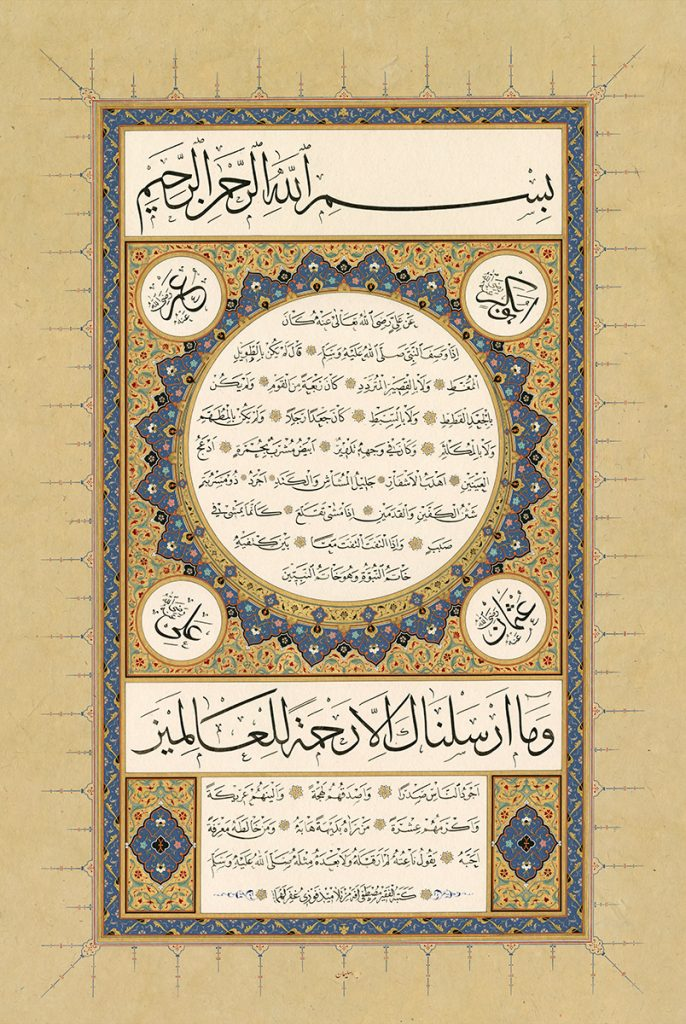 بسم الله الرحمن الرحيم
ابو بكر رضي الله عنه
عمر رضي الله عنه
عن علي رضي الله تعالى عنه كان
اذا وصف النبي صلى الله عليه وسلم قال لم يكن بالطويل
الممغط ولا بالقصير المتردد كان ربعة من القوم ولم يكن
بالجعد القطط ولا بالسبط كان جعدا رجلا ولم يكن بالمطهم
ولا بالمكلثم وكان في وجهه تدوير ابيض مشرب بحمرة ادعج
العينين اهدب الاشفار جليل المشاش والكتد اجرد ذو مسربة
شثن الكفين والقدمين اذا مشى تقلع كانما يمشي في
صبب واذا التفت التفت معا بين كتفيه
خاتم النبوة وهو خاتم النبيين
عثمان رضي الله عنه
علي رضي الله عنه
وما ارسلناك الا رحمة للعالمين
اجود الناس صدرا واصدقهم لهجة والينهم عريكة
واكرمهم عشرة من رآه بديهة هابه ومن خالطه معرفة
احبه يقول ناعته لم ار قبله ولا بعده مثله صلى الله عليه وسلم
كتبه الفقير مصطفى من تلاميذ فوزي غفر لهما